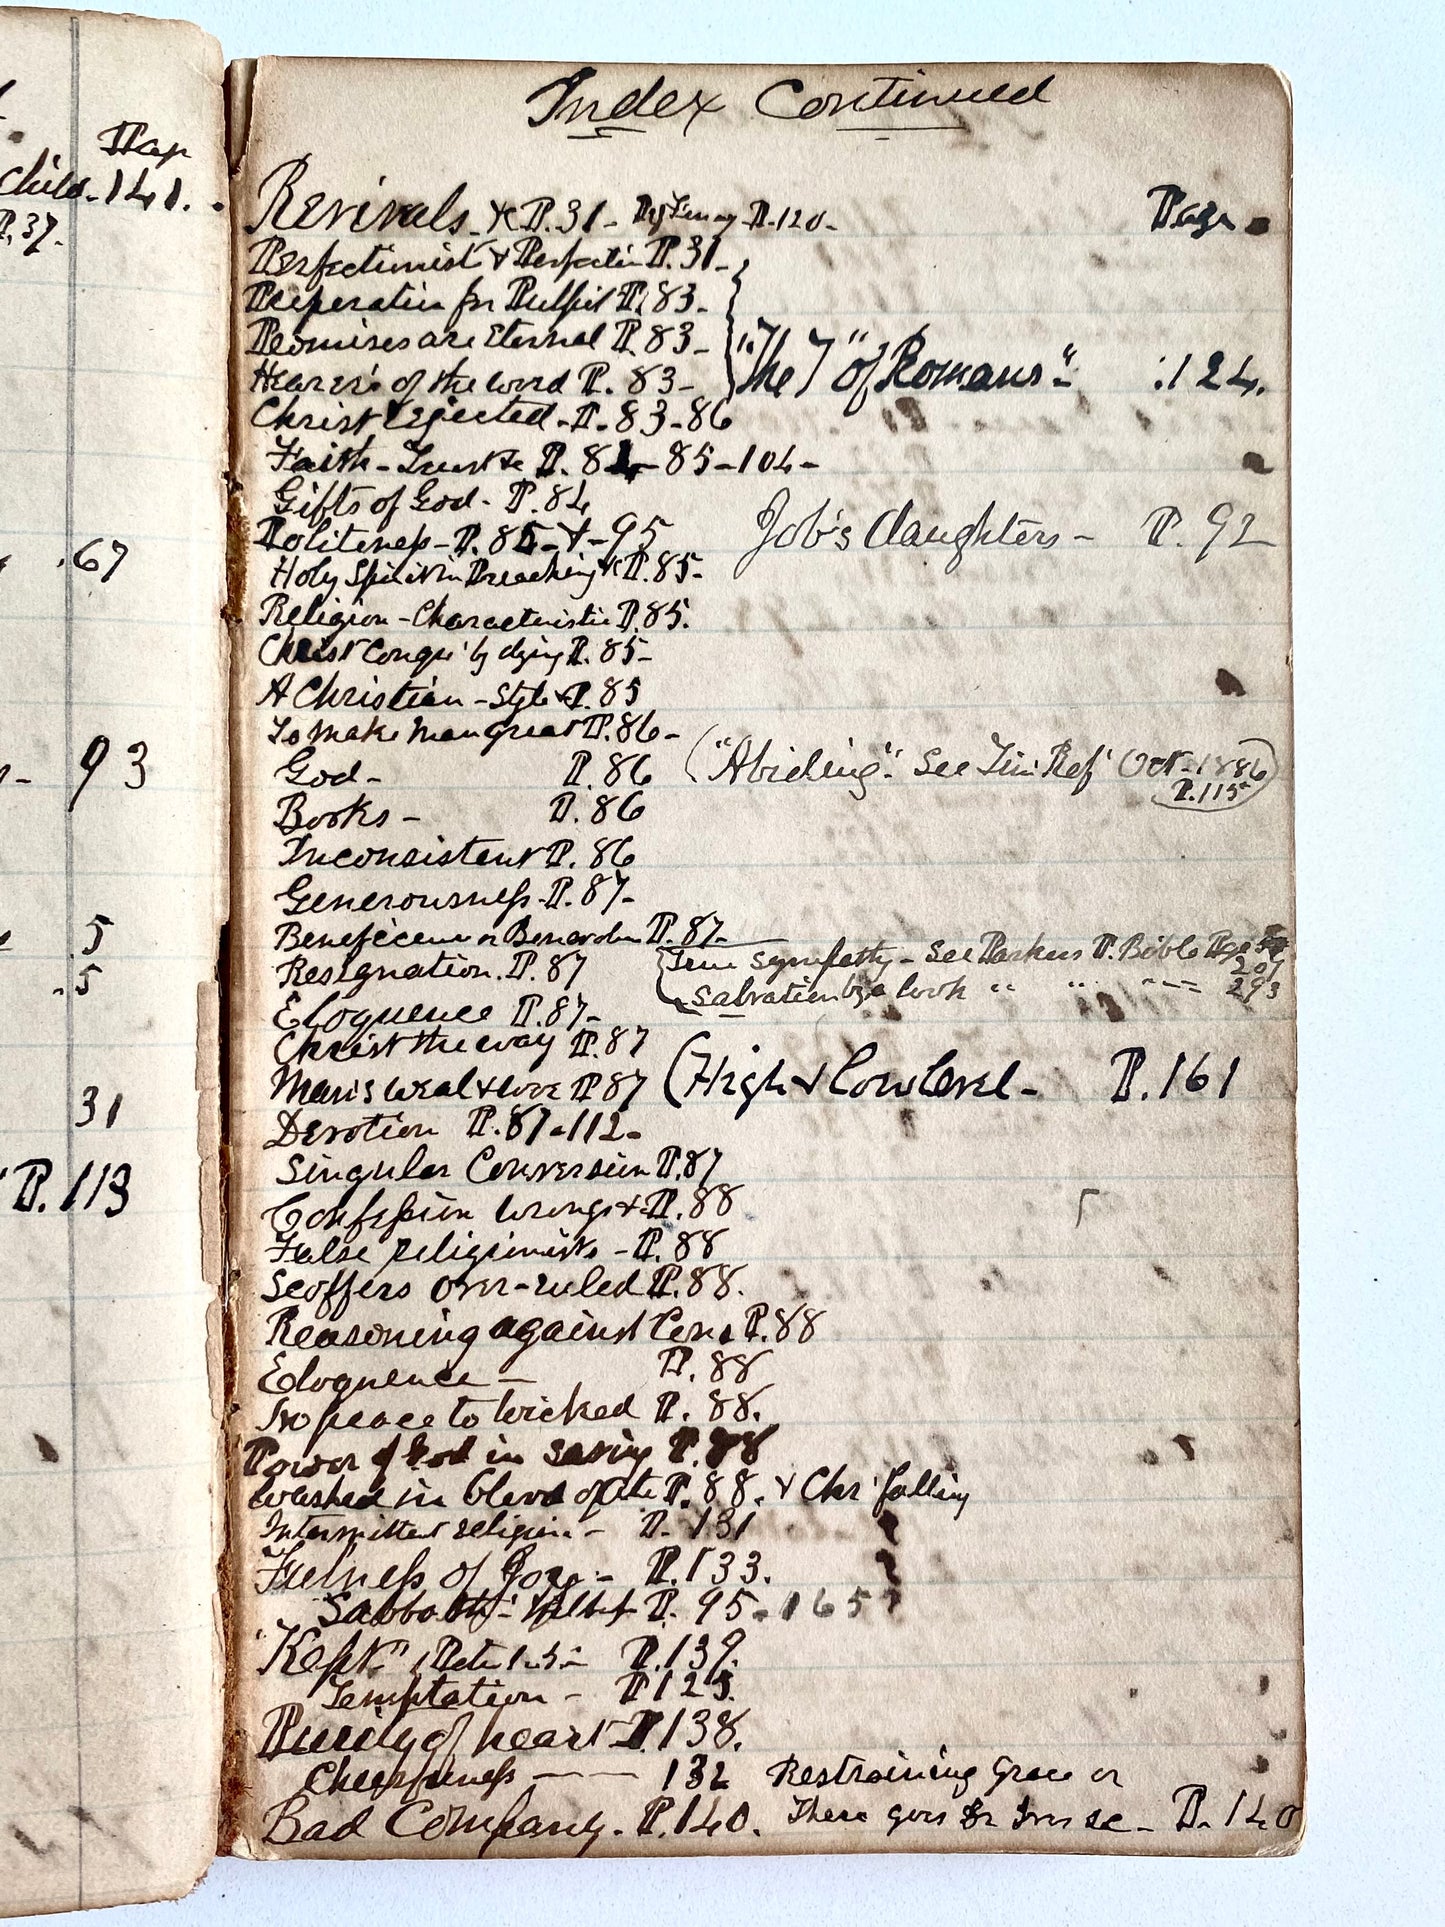 Pag
Child-141.
P.37-
67
93
5
5
31
P.113
Index Continued
Revivals &c P.31- P.120-
Page
Perfectionist & Perfection P.31-
Preperation for Pulpit P.83-
Promises are Eternal P.83-
"The 7" of Romans"- :124.
Hearer's of the word P. 83-
Christ Rejected-P.83-86
Faith-Trust &c P. 84-85-104-
Gifts of God- P.84
Politeness-P.85-+-95
Job's daughters- P.92
Holy Spirit in Preaching &c P.85-
Religion-Characteristic P.85.
Christ Conqu' by dying P.85-
A Christian-Style & P.85
To make Man great P.86-
God- P.86
("Abiding" See Tim Ref' Oct-1886)
P.115
Books- P.86
Inconsistent P.86
Generousness-P.87-
Benefecence or Benevolen P.87-
True sympathy-See Parkers P. Bible Page 207
Resignation. P.87
Salvation by a look " " " 293
Eloquence P.87-
Christ the way P.87
Man's weal & woe P.87
(High & low level- P.161
Devotion P.87-112-
Singular Conversion P.87
Confession wrongs & P.88
False religionists-P.88
Scoffers over-ruled P.88.
Reasoning against Cons P.88
Eloquence- P.88
No peace to wicked P. 88.
Power of God in saving P.88
Washed in blood of P.88. & Chr' falling
Intermittent religion- P. 131
Fulness of P.133.
Sabbath- P. 95-165
"Kept" 1 Peter 1-5- P.139.
Temptation- P125.
Purity of heart-P.138.
Cheerfulness -- 132
Restraining Grace or
Bad Company. P.140.
There goes P.140